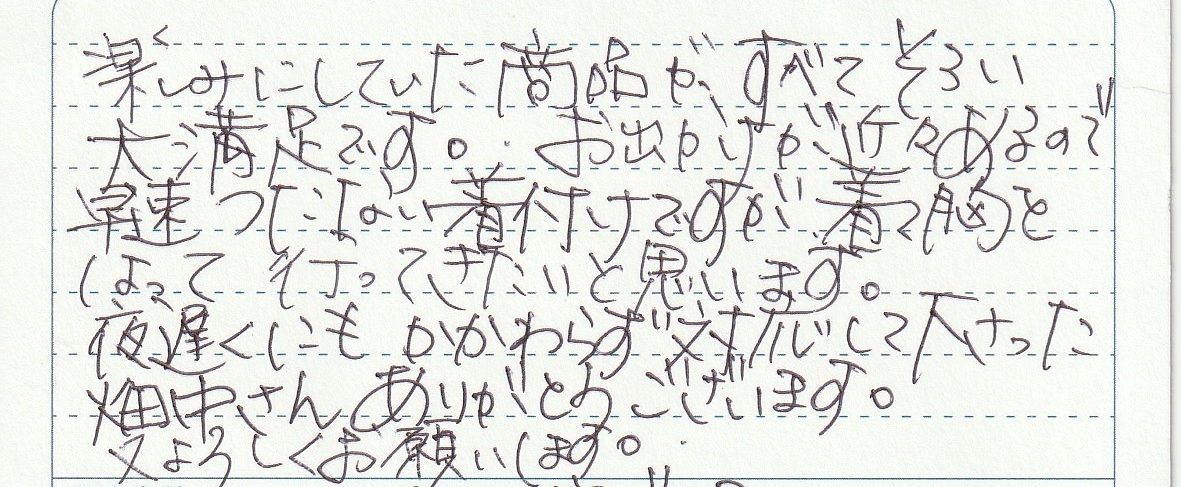 楽しみにしていた商品が、すべてそろい
大満足です。お出かけが近々あるので
早速つたない着付けですが、着て
行ってきたいと思います。
夜遅くにもかかわらず対応して下さった
畑中さんありがとうございます。
又よろしくお願いします。